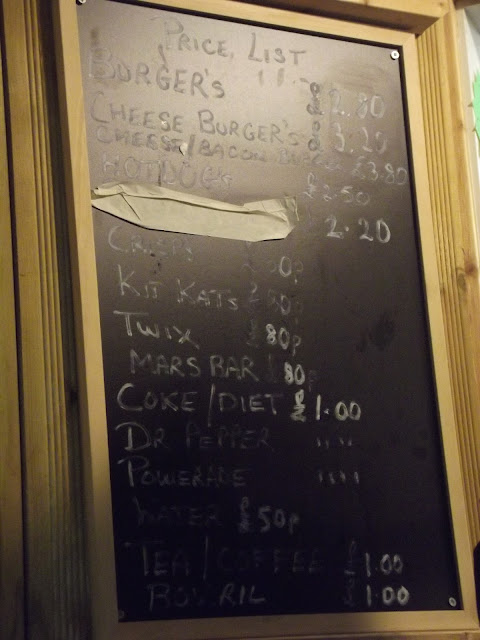 PRICE LIST
BURGER'S 2.80
CHEESE BURGER'S 3.20
CHEESE/BACON BURGER £3.80
HOTDOG'S £2.50
2.20
CRISPS 50p
KIT KATS 50p
TWIX 80p
MARS BAR 80p
COKE/DIET £1.00
DR PEPPER " "
POWERADE " "
WATER £50p
TEA/COFFEE £1.00
BOVRIL £1.00